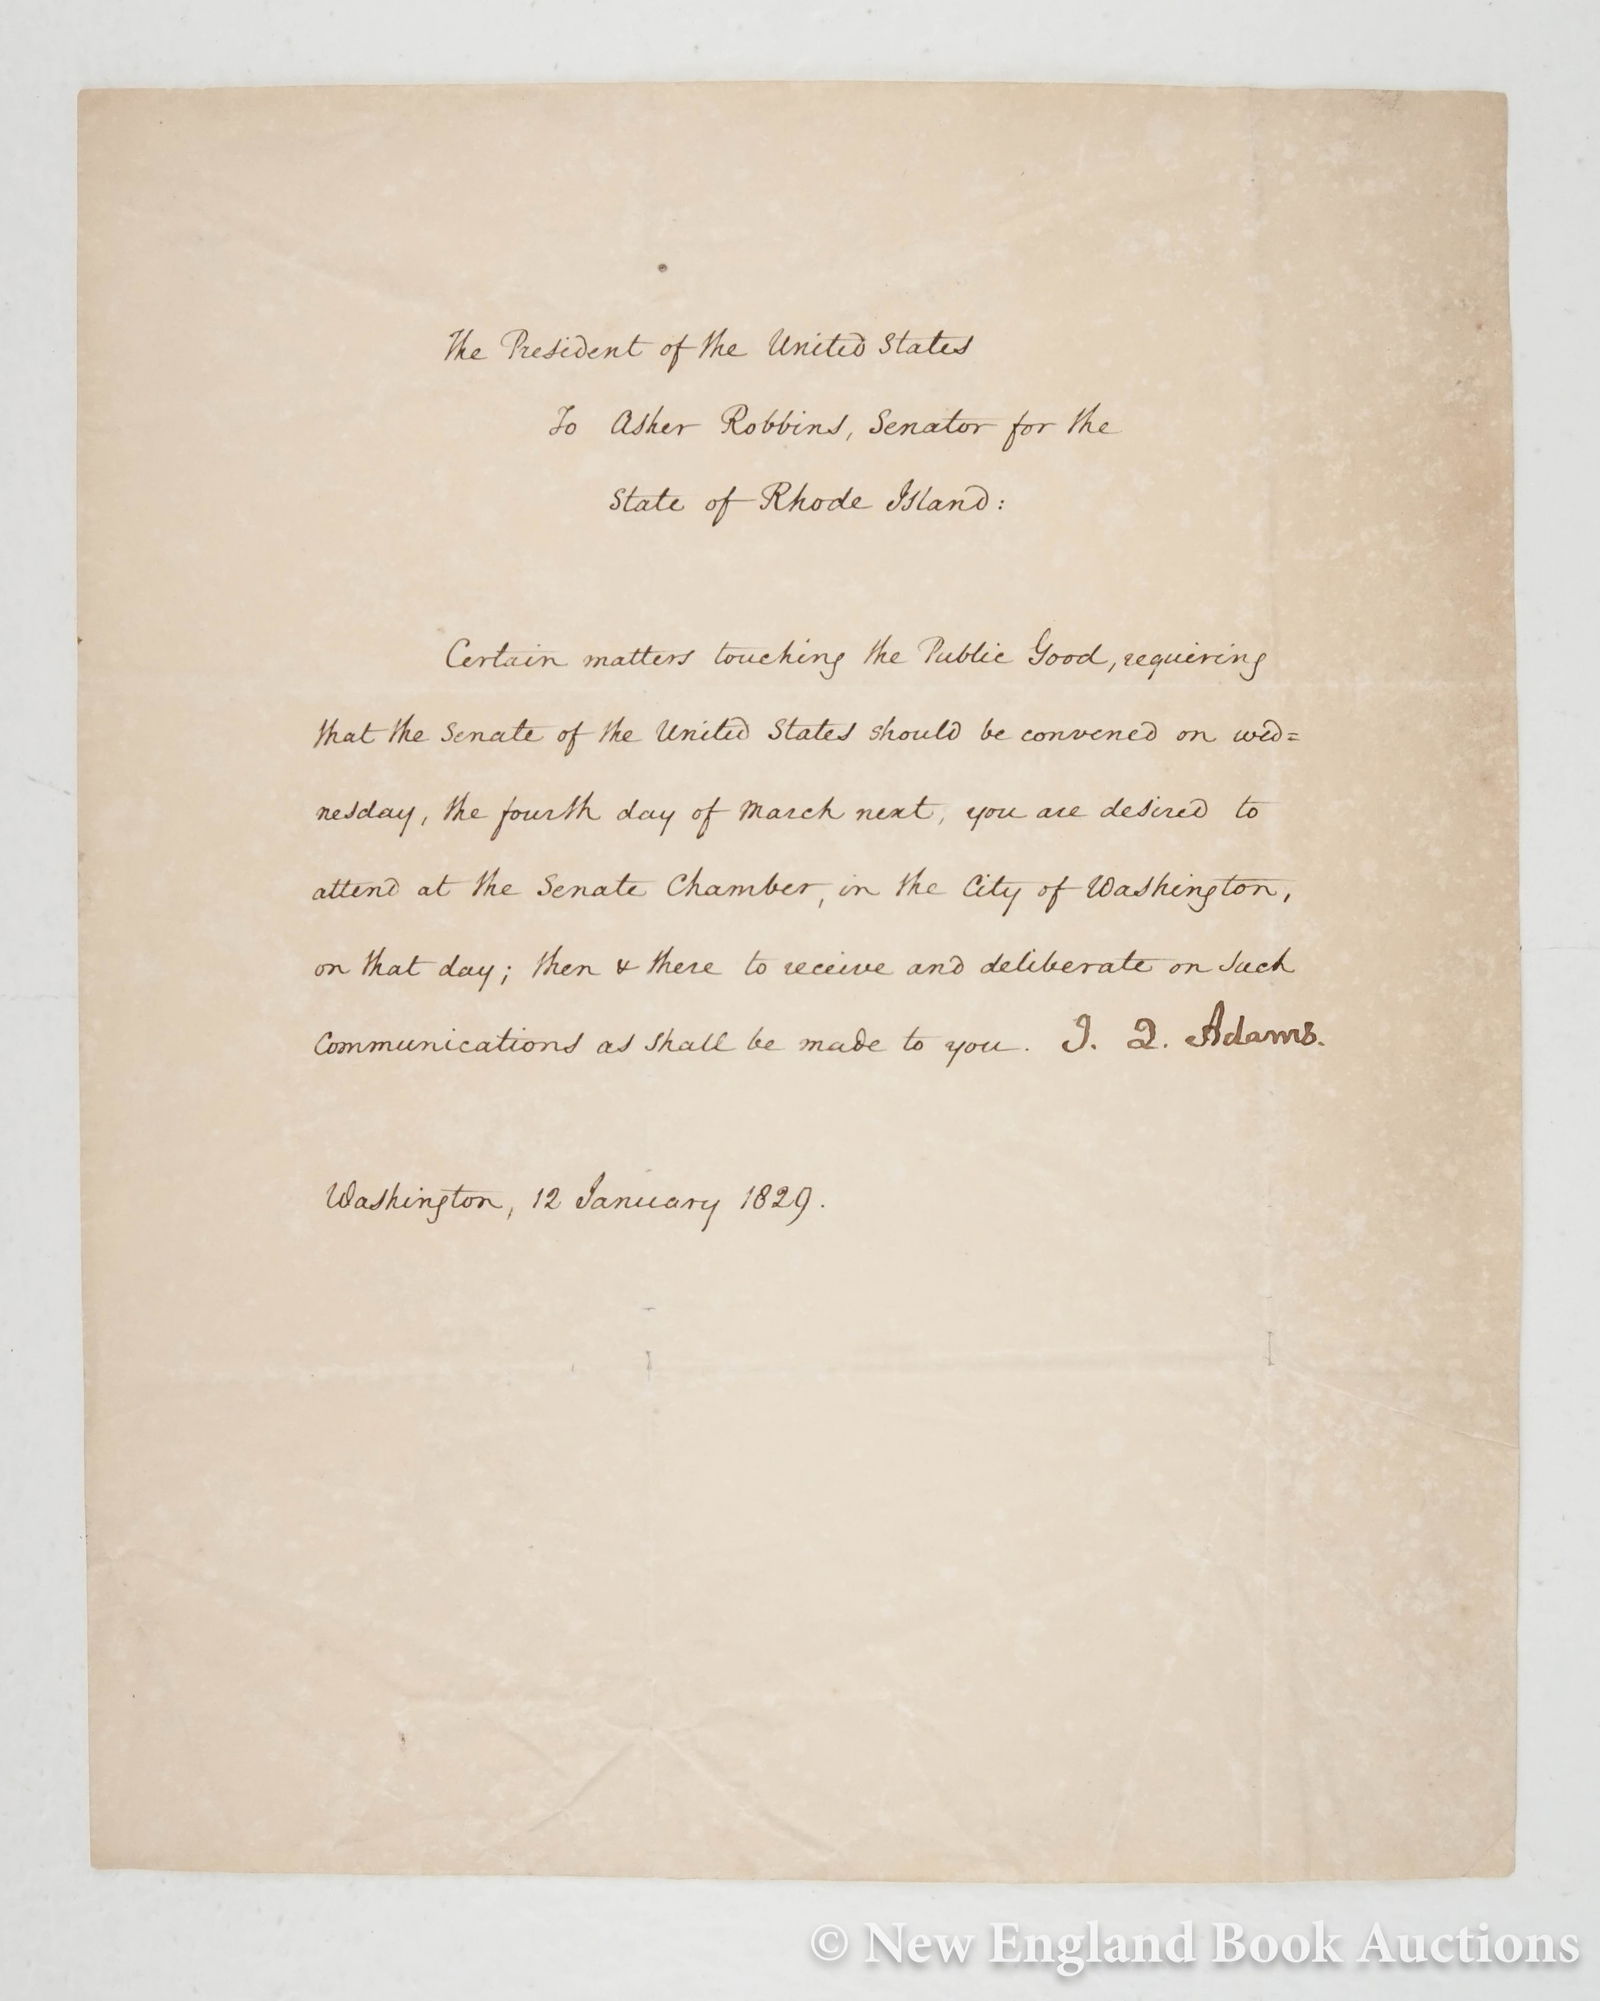 The President of the United States
To Asher Robbins, Senator for the
State of Rhode Island:
Certain matters touching the Public Good, requiring
that the Senate of the United States should be convened on wed=
nesday, the fourth day of March next, you are desired to
attend at the Senate Chamber, in the City of Washington,
on that day; then & there to receive and deliberate on such
Communications as shall be made to you. J. Q. Adams.
Washington, 12 January 1829.
© New England Book Auctions